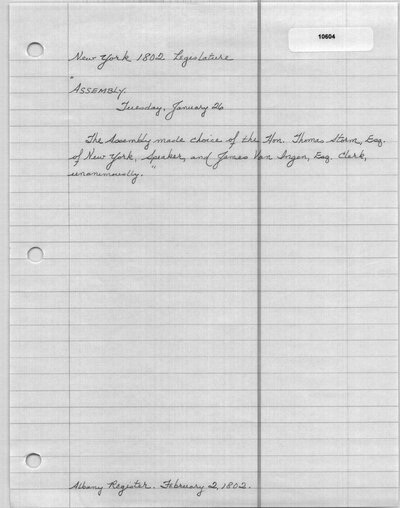 10604
New York 1802 Legislature
"
ASSEMBLY.
Tuesday, January 26
The Assembly made choice of the Hon. Thomas Storm, Esq.
of New York, Speaker, and James Van Ingen, Esq. Clerk,
unanimously."
Albany Register. February 2, 1802.